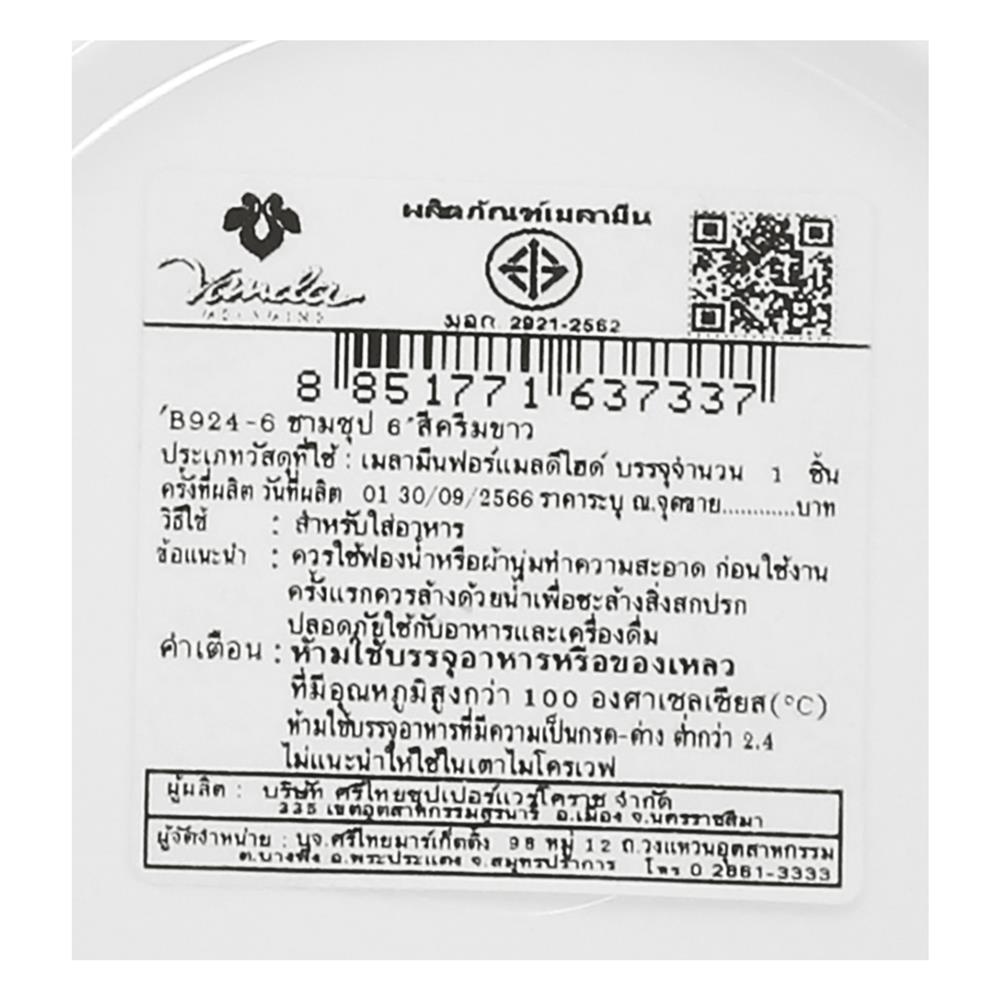 ผลิตภัณฑ์เมลามีน
Vanda
MELAMINE
มอก. 2921-2562
8 851771 637337
B924-6 ชามซุป 6" สีครีมขาว
ประเภทวัสดุที่ใช้ : เมลามีนฟอร์แมลดีไฮด์ บรรจุจำนวน 1 ชิ้น
ครั้งที่ผลิต วันที่ผลิต 01 30/09/2566 ราคาระบุ ณ.จุดขาย............บาท
วิธีใช้ : สำหรับใส่อาหาร
ข้อแนะนำ : ควรใช้ฟองน้ำหรือผ้านุ่มทำความสะอาด ก่อนใช้งาน
ครั้งแรกควรล้างด้วยน้ำเพื่อชะล้างสิ่งสกปรก
ปลอดภัยใช้กับอาหารและเครื่องดื่ม
คำเตือน : ห้ามใช้บรรจุอาหารหรือของเหลว
ที่มีอุณหภูมิสูงกว่า 100 องศาเซลเซียส(°C)
ห้ามใช้บรรจุอาหารที่มีความเป็นกรด-ด่าง ต่ำกว่า 2.4
ไม่แนะนำให้ใช้ในเตาไมโครเวฟ
ผู้ผลิต : บริษัท ศรีไทยซุปเปอร์แวร์โคราช จำกัด
335 เขตอุตสาหกรรมสุรนารี อ.เมือง จ.นครราชสีมา
ผู้จัดจำหน่าย : บจ.ศรีไทยมาร์เก็ตติ้ง 98 หมู่ 12 ถ.วงแหวนอุตสาหกรรม
ต.บางพึ่ง อ.พระประแดง จ.สมุทรปราการ โทร 0 2861-3333